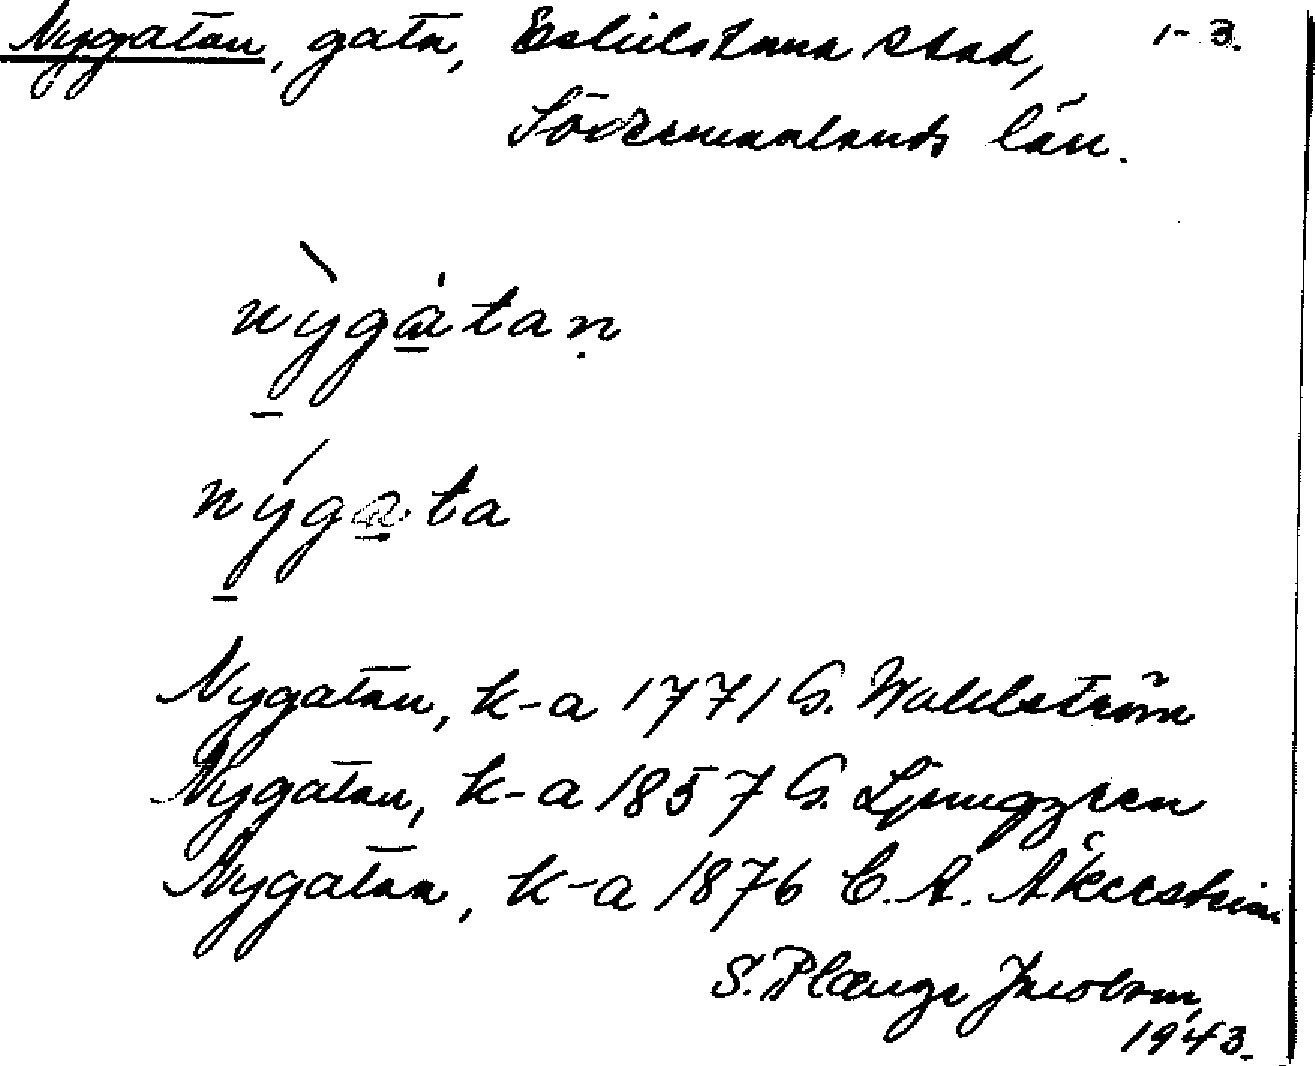 Nygatan, gata, Eskilstuna stad, 1-3.
Södermanlands län.
nỳgàtaṇ
nýgata
Nygatan, k-a 1771 G. Wahlström
Nygatan, k-a 1857 G. Ljunggren
Nygatan, k-a 1876 C. A. Åkerström
S. Plænge Jacobson,
1943.